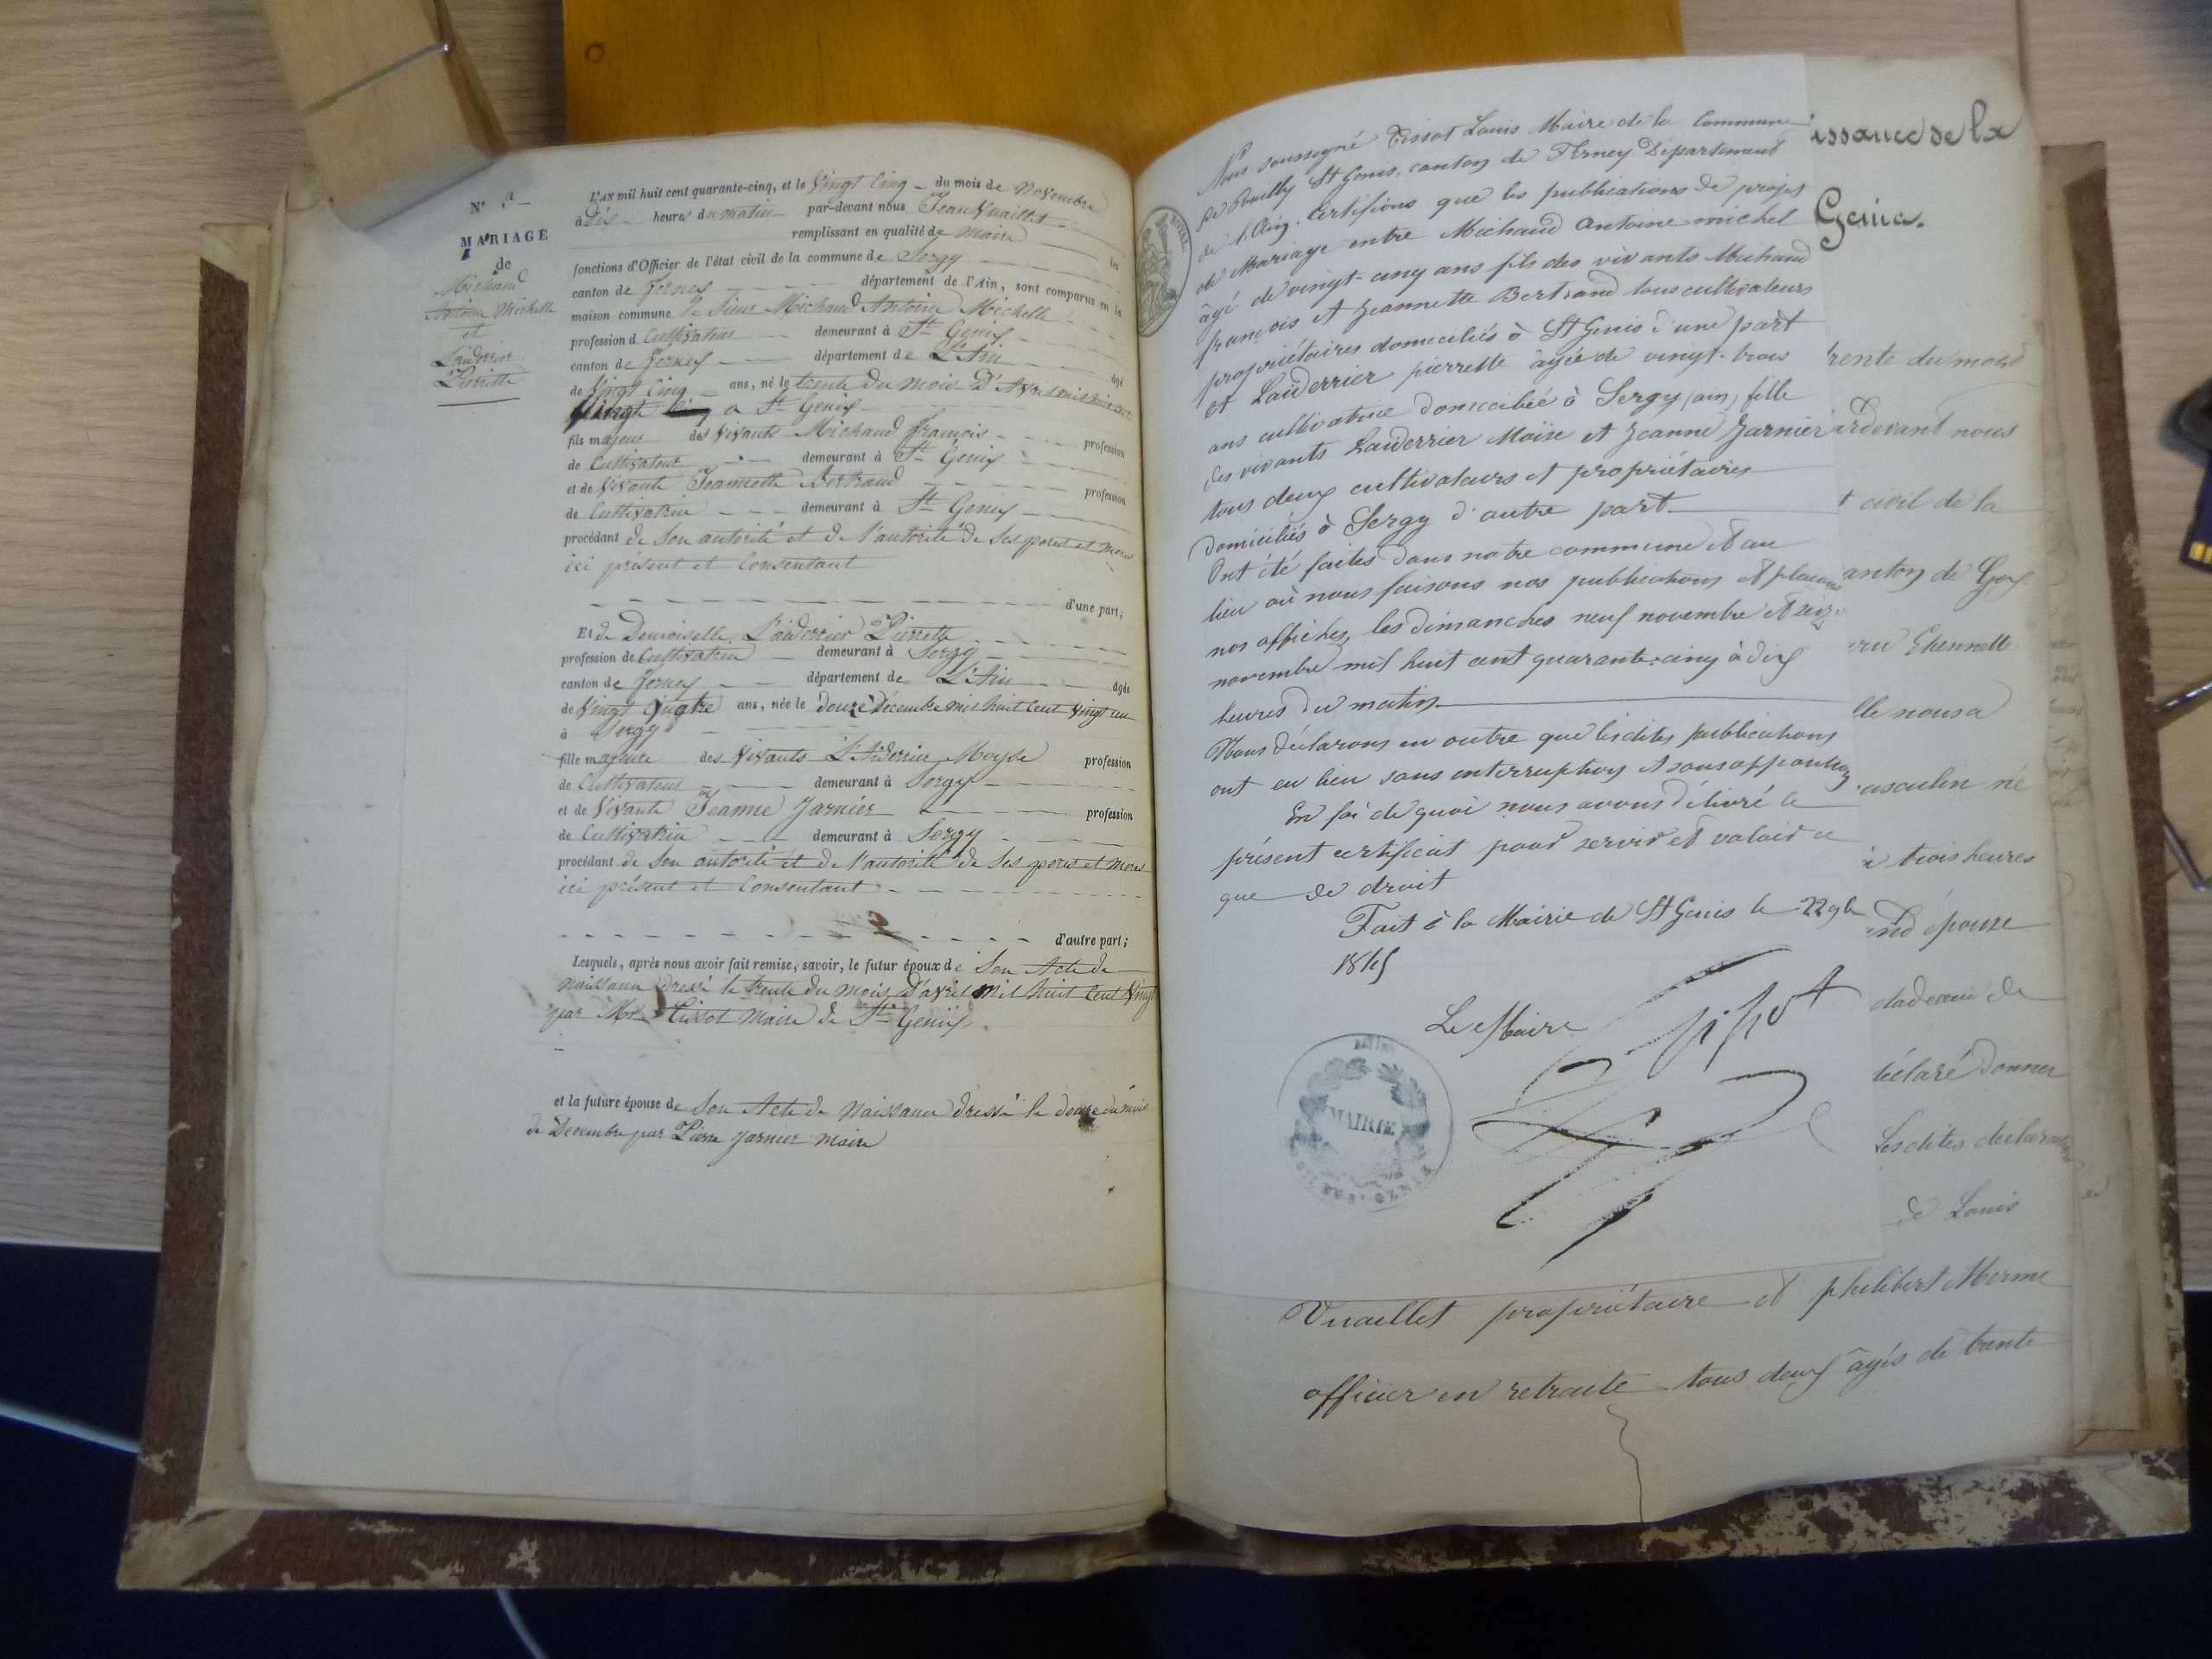 N° 2
MARIAGE
de
Michaud
Antoine Michelle
et
Laiderrier
Pierrette
L'AN mil huit cent quarante-cinq, et le Vingt Cinq du mois de Novembre
à Dix heures du matin par-devant nous Jean Vuaillet
remplissant en qualité de Maire les
fonctions d'Officier de l'état civil de la commune de Sergy
canton de Ferney département de l'Ain, sont comparus en la
maison commune le Sieur Michaud Antoine Michelle
profession d Cultivateur demeurant à St Genis
canton de Ferney département de L'Ain âgé
de Vingt Cinq ans, né le trente du mois D'Avril mil huit cent
Vingt a St Genis
fils majeur des Vivants Michaud François profession
de Cultivateur demeurant à St Genis
et de Vivante Jeannette Bertrand profession
de Cultivatrice demeurant à St Genis
procédant de Son autorité et de l'autorité de Ses peres et meres
ici présent et Consentant
d'une part;
Et de Demoiselle Laiderrier Pierrette
profession de Cultivatrice demeurant à Sergy
canton de Ferney département de L'Ain âgée
de Vingt Quatre ans, née le douze Décembre mil huit Cent Vingt un
à Sergy
fille majeure des Vivants L'Aiderrier Moyse profession
de Cultivateur demeurant à Sergy
et de Vivante Jeanne Jarnier profession
de Cultivatrice demeurant à Sergy
procédant de Son autorité et de l'autorité de Ses peres et meres
ici présent et Consentant
d'autre part;
Lesquels, après nous avoir fait remise, savoir, le futur époux de Son Acte de
naissance dressé le trente du mois D'avril Mil huit Cent Vingt
par Mr Tissot Maire de St Genis
et la future épouse de Son Acte de Naissance dressé le douze du mois
de Decembre par Pierre Jarnier Maire
ROYAL
Nous soussigné Tissot Louis Maire de la Commune
de Pouilly St Genis, canton de Ferney Département
de l'Ain. Certifions que les publications de projet
de Mariage entre Michaud Antoine michel
âgé de vingt-cinq ans fils des vivants Michaud
françois et Jeannette Bertrand tous cultivateurs
propriétaires domiciliés à St Genis d'une part
et Laiderrier pierrette âgée de vingt-trois
ans cultivatrice domiciliée à Sergy (ain) fille
des vivants Laiderrier Moïse et Jeanne Jarnier
tous deux cultivateurs et propriétaires
domiciliés à Sergy d'autre part
Ont été faites dans notre commune et au
lieu où nous faisons nos publications et placons
nos affiches, les dimanches neuf novembre et seize
novembre mil huit cent quarante-cinq à dix
heures du matin
Nous déclarons en outre que lesdites publications
ont eu lieu sans interruption et sans opposition
En foi de quoi nous avons délivré le
présent certificat pour servir et valoir ce
que de droit
Fait à la Mairie de St Genis le 22 9bre
1845
Le Maire
Tissot
MAIRIE
issance de la
Genis.
trente du mois
ardevant nous
t civil de la
anton de Gex
Ehennette
lle nous a
asculin né
à trois heures
nd épouse
déclaré donner
Lesdites déclaration
de Louis
Vuaillet propriétaire et philibert Merme
officier en retraite tous deux âgés de trente